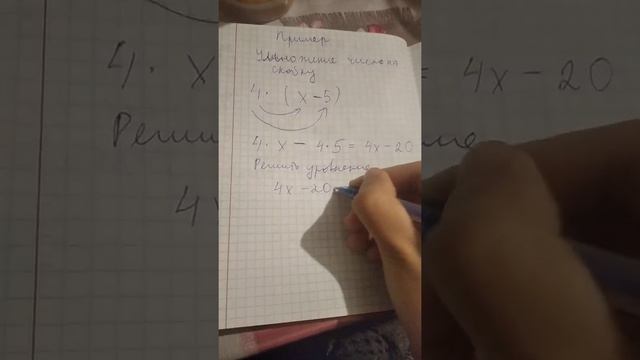 Пример
Умножение числа на
скобку
4 · (x - 5)
4 · x - 4 · 5 = 4x - 20
Решить уравнение
4x - 20